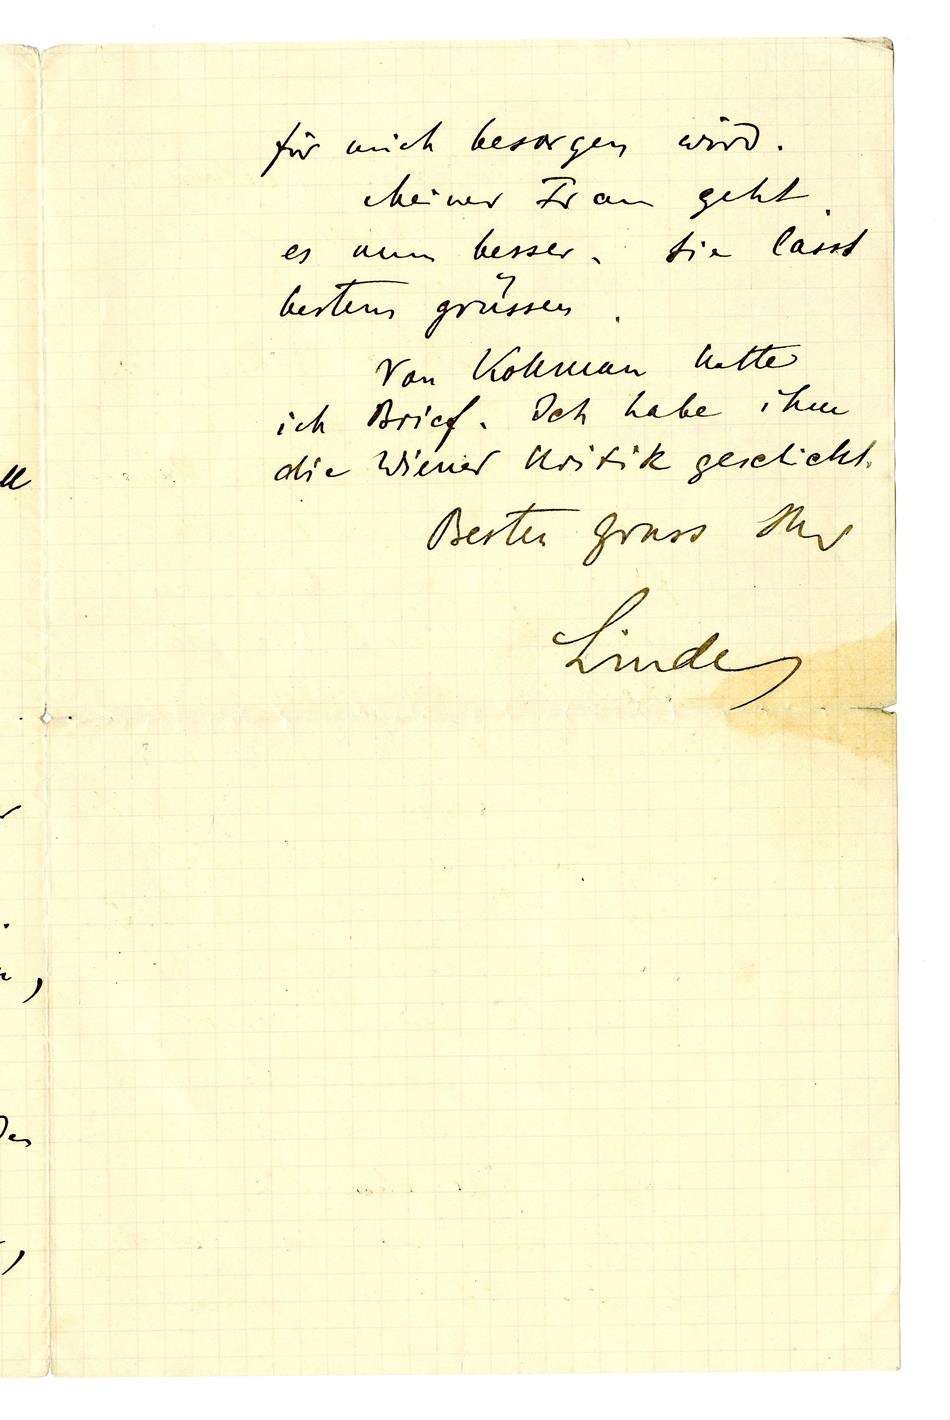 für mich besorgen wird.
Meiner Frau geht
es nun besser. Sie lässt
bestens grüssen.
Von Kohman hatte
ich Brief. Ich habe ihm
die Wiener Kritik geschickt.
Besten Gruss Ihr
Linde